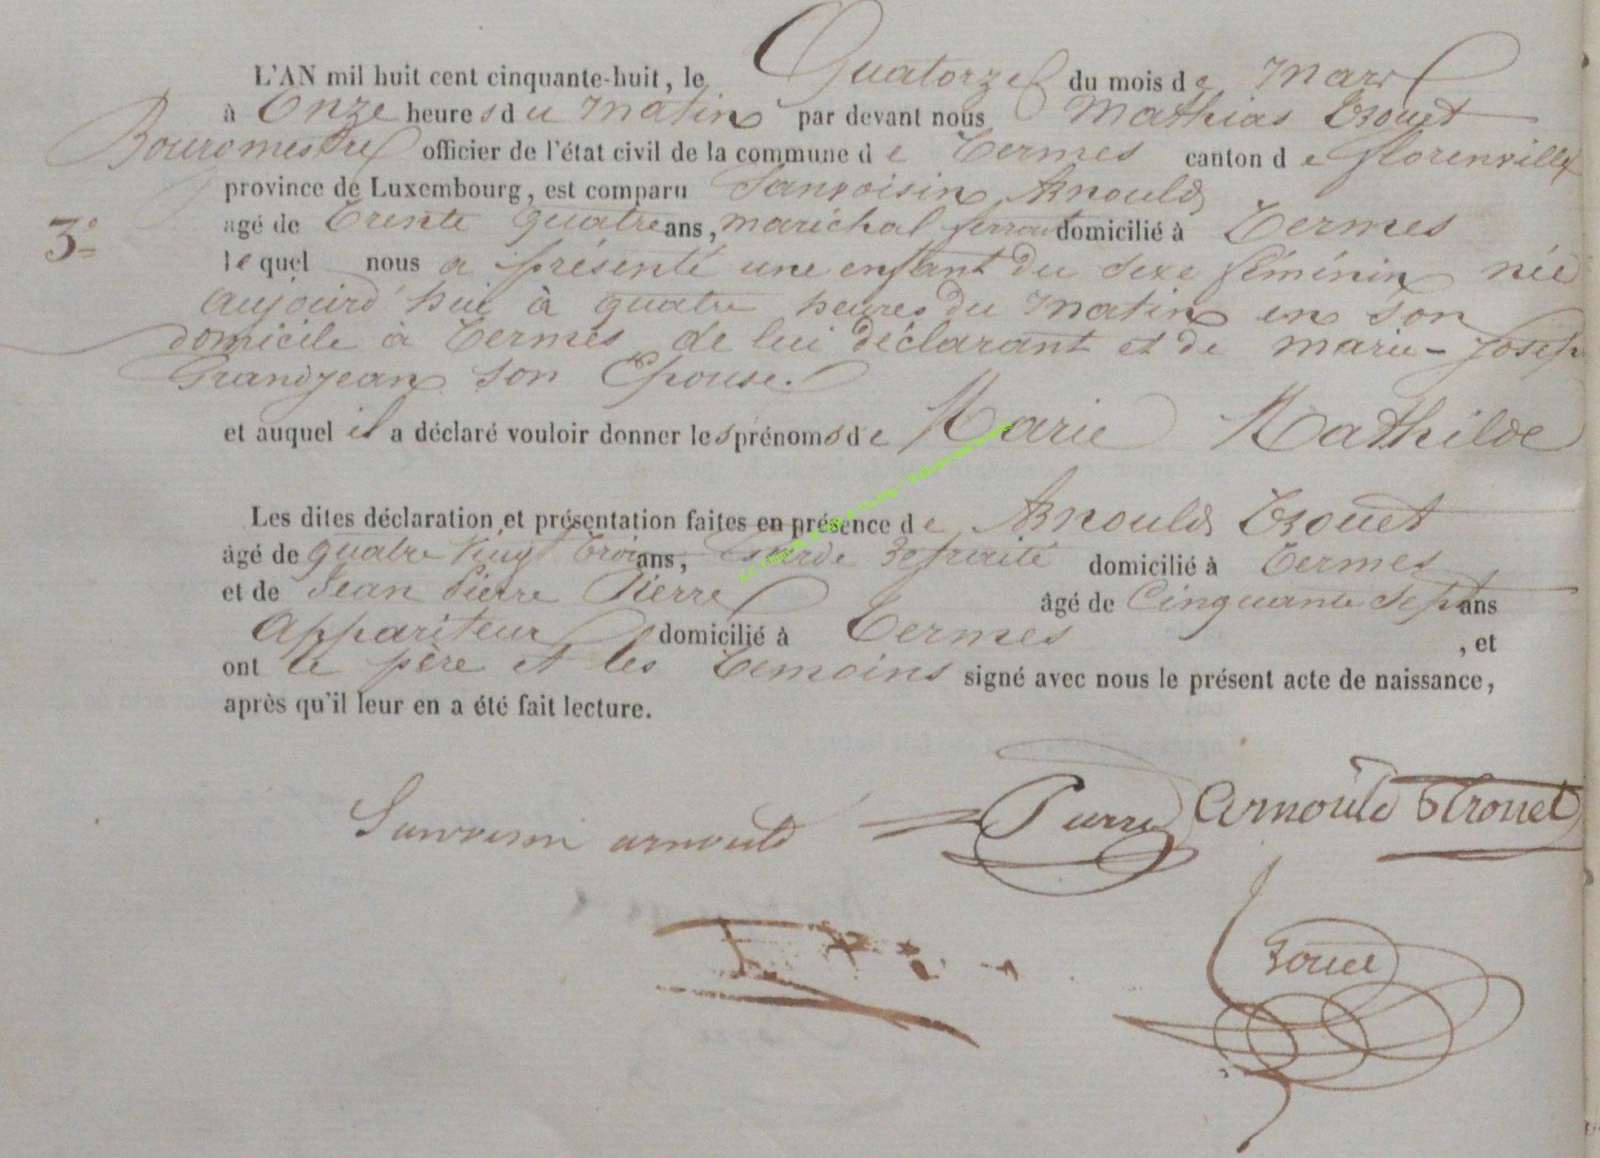 L'AN mil huit cent cinquante-huit, le Quatorze du mois de Mars
à Onze heures du Matin par devant nous Mathias Trouet
Bourgmestre officier de l'état civil de la commune de Termes canton de florenville
province de Luxembourg, est comparu Sanvoisin Arnould
3°
agé de Trente quatre ans, maréchal ferrant domicilié à Termes
lequel nous a présenté une enfant du sexe féminin née
aujourd'hui à quatre heures du Matin en son
domicile à Termes de lui déclarant et de marie-Joseph
Grandjean son Epouse.
et auquel il a déclaré vouloir donner les prénoms de Marie Mathilde
Les dites déclaration et présentation faites en présence de Arnould Trouet
âgé de quatre vingt trois ans, Garde domicilié à Termes
et de Jean Pierre Pierre âgé de Cinquante sept ans
Appariteur domicilié à Termes, et
ont le père et les temoins signé avec nous le présent acte de naissance,
après qu'il leur en a été fait lecture.
Sanvoisin arnould Pierre Arnould Trouet
Trouet